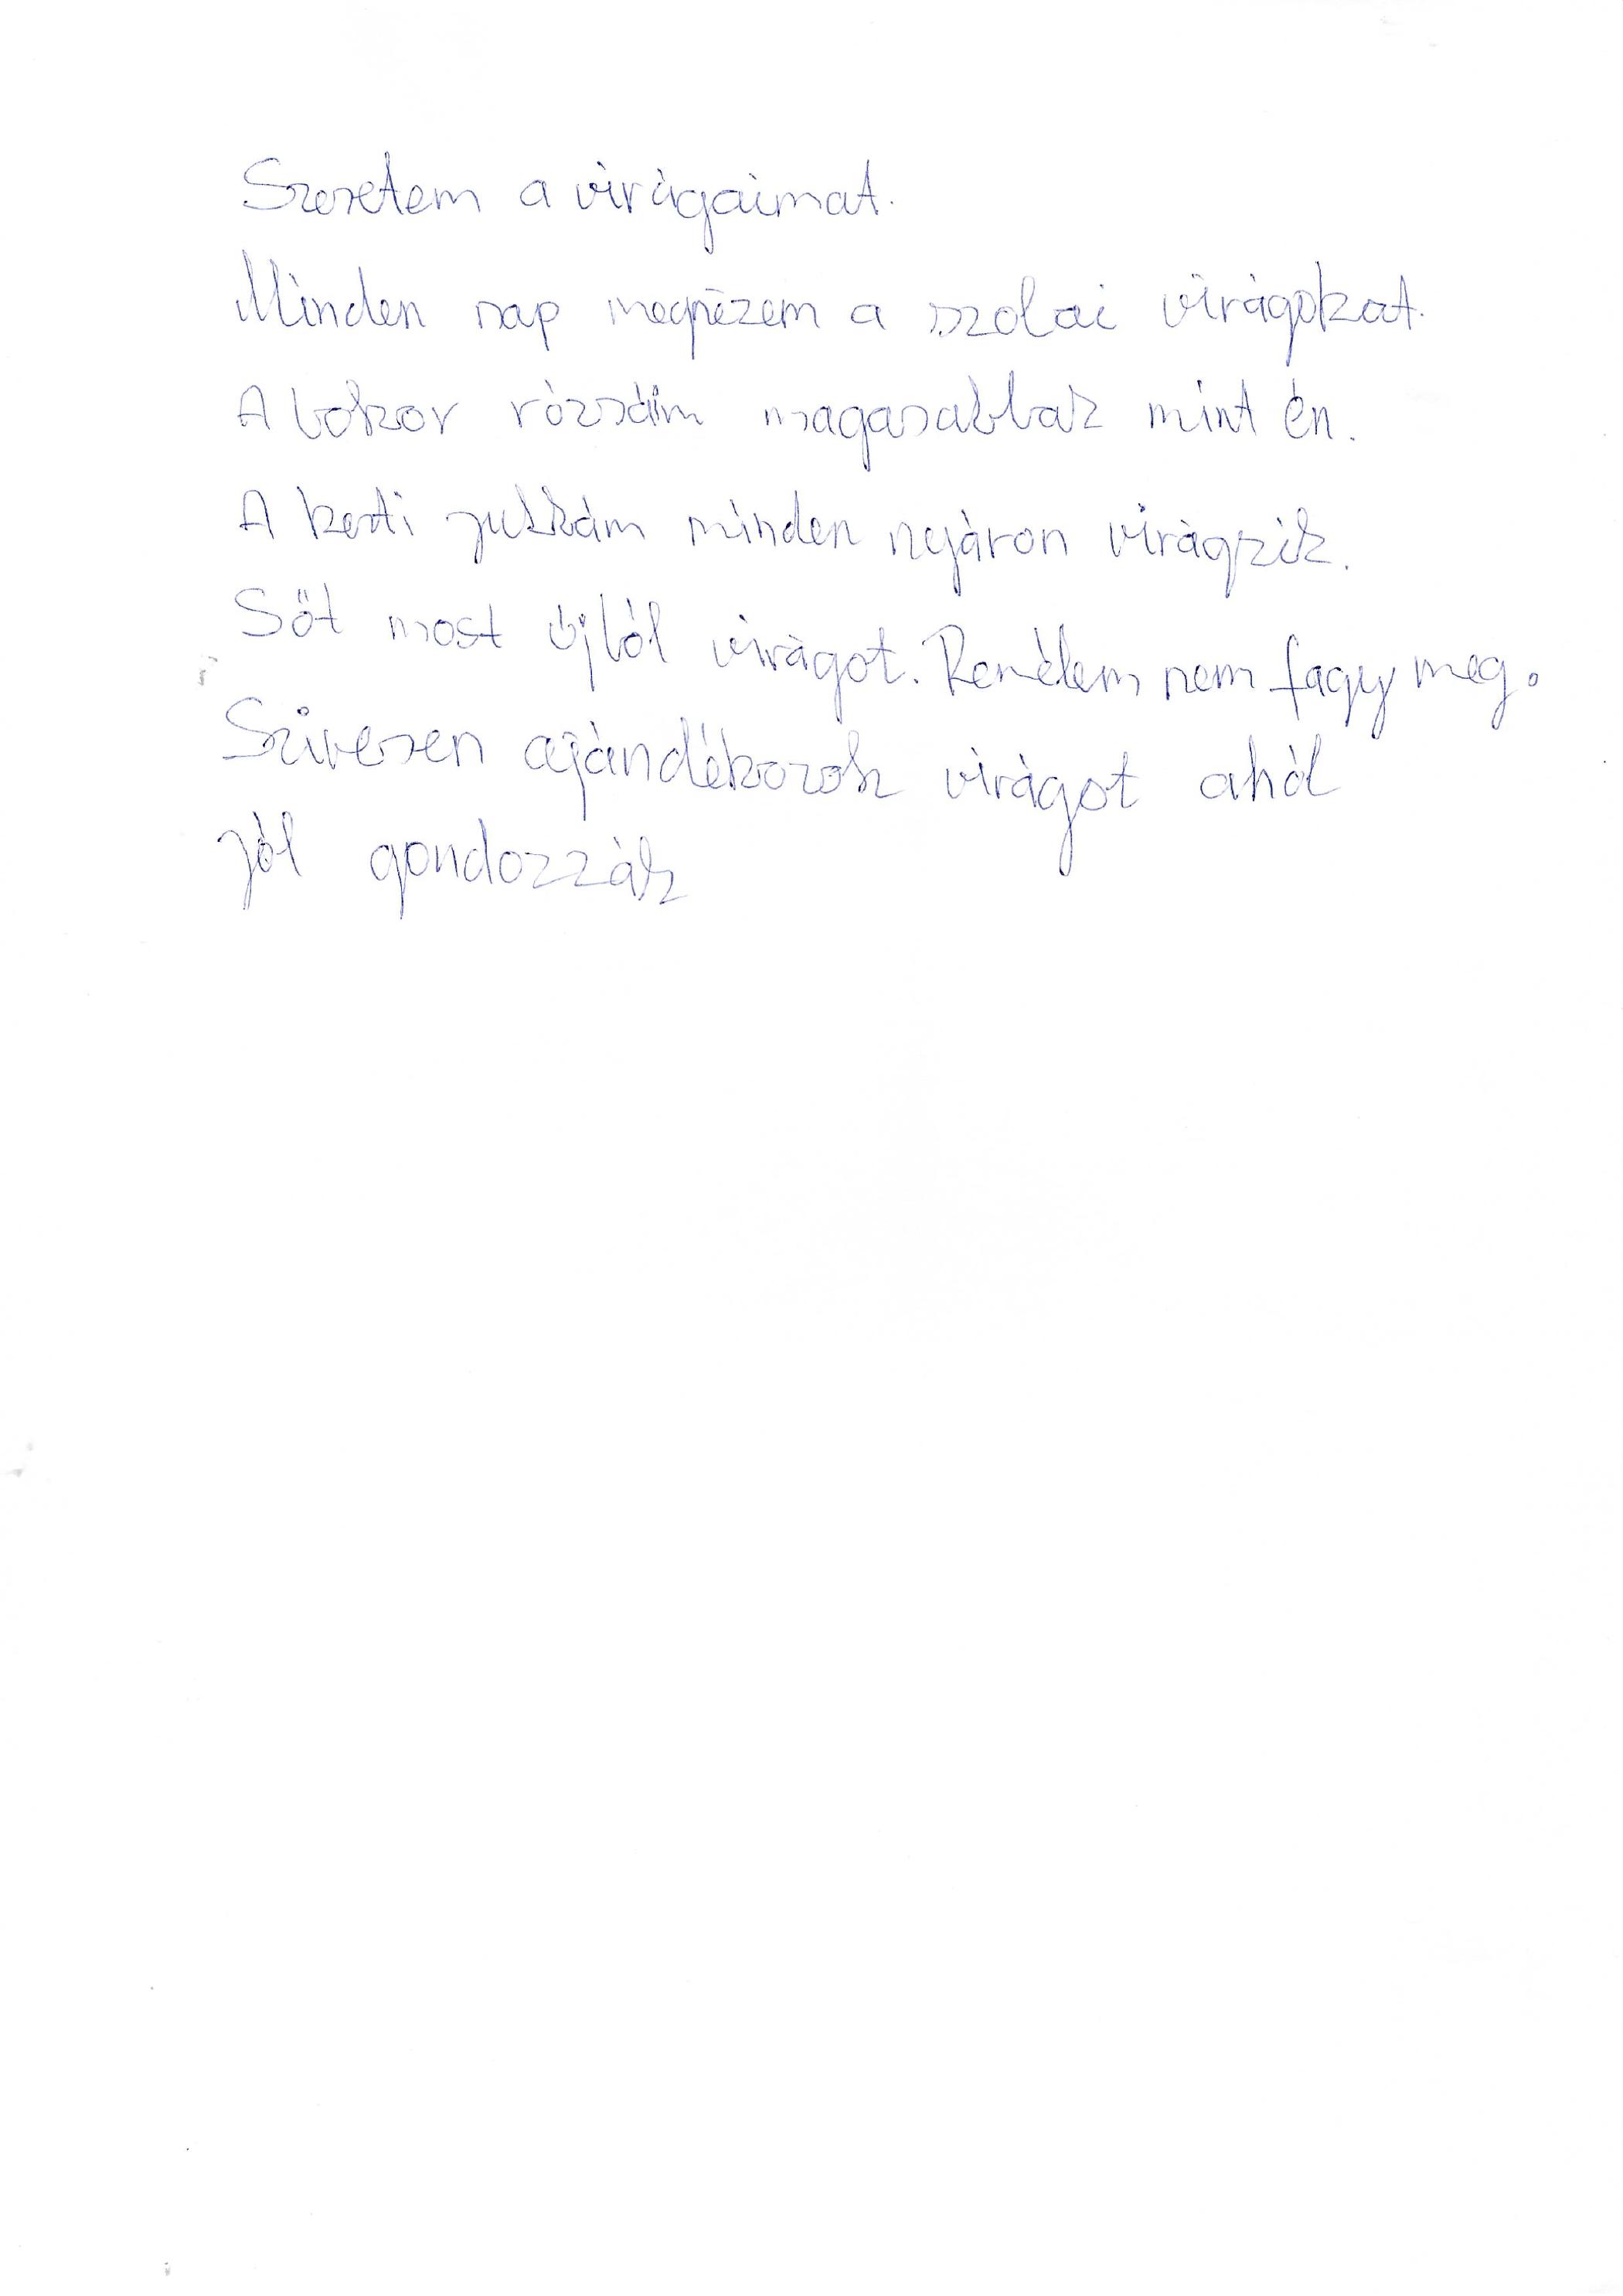 Szeretem a virágaimat.
Minden nap megnézem a szolai virágokat.
A bokor rózsáim magasabbak mint én.
A kerti jukkám minden nyáron virágzik.
Sőt most újból virágot. Remélem nem fagy meg.
Szivesen ajándékozok virágot ahól
jól gondozzák